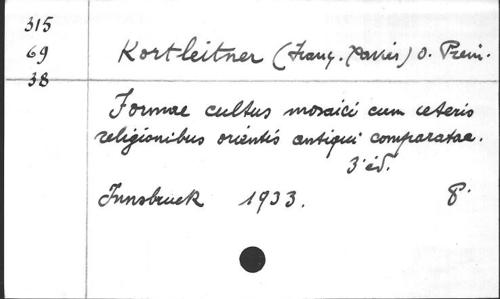 315
69
38
Kortleitner (Franç. Xavier) O. Prém.
Formae cultus mosaici cum ceteris
religionibus orientis antiqui comparatae.
3 éd.
Innsbruck 1933. 8°.